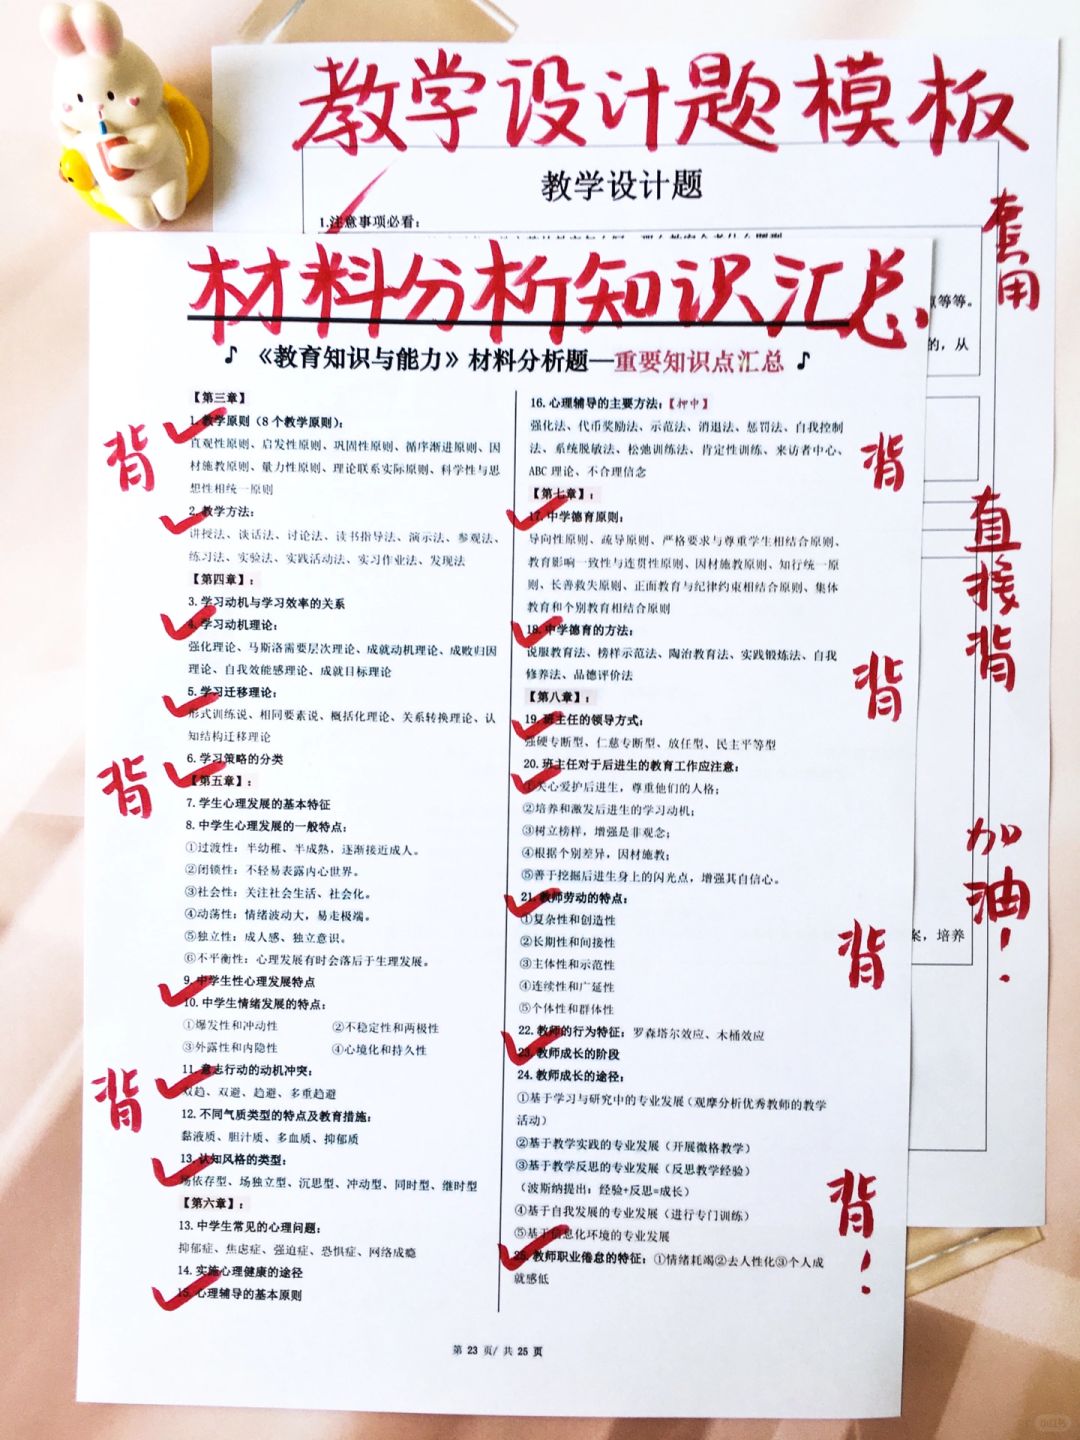 教学设计题模板
教学设计题
1.注意事项必看：
套用
等等。
的，从
直接背
加油！
案，培养
材料分析知识汇总
♪《教育知识与能力》材料分析题—重要知识点汇总 ♪
【第三章】
1.教学原则（8个教学原则）：
直观性原则、启发性原则、巩固性原则、循序渐进原则、因
材施教原则、量力性原则、理论联系实际原则、科学性与思
想性相统一原则
2.教学方法：
讲授法、谈话法、讨论法、读书指导法、演示法、参观法、
练习法、实验法、实践活动法、实习作业法、发现法
【第四章】：
3.学习动机与学习效率的关系
4.学习动机理论：
强化理论、马斯洛需要层次理论、成就动机理论、成败归因
理论、自我效能感理论、成就目标理论
5.学习迁移理论：
形式训练说、相同要素说、概括化理论、关系转换理论、认
知结构迁移理论
6.学习策略的分类
【第五章】：
7.学生心理发展的基本特征
8.中学生心理发展的一般特点：
①过渡性：半幼稚、半成熟，逐渐接近成人。
②闭锁性：不轻易表露内心世界。
③社会性：关注社会生活、社会化。
④动荡性：情绪波动大，易走极端。
⑤独立性：成人感、独立意识。
⑥不平衡性：心理发展有时会落后于生理发展。
9.中学生性心理发展特点
10.中学生情绪发展的特点：
①爆发性和冲动性 ②不稳定性和两极性
③外露性和内隐性 ④心境化和持久性
11.意志行动的动机冲突：
双趋、双避、趋避、多重趋避
12.不同气质类型的特点及教育措施：
黏液质、胆汁质、多血质、抑郁质
13.认知风格的类型：
场依存型、场独立型、沉思型、冲动型、同时型、继时型
【第六章】：
13.中学生常见的心理问题：
抑郁症、焦虑症、强迫症、恐惧症、网络成瘾
14.实施心理健康的途径
15.心理辅导的基本原则
背
背
背
16.心理辅导的主要方法：【押中】
强化法、代币奖励法、示范法、消退法、惩罚法、自我控制
法、系统脱敏法、松弛训练法、肯定性训练、来访者中心、
ABC 理论、不合理信念
【第七章】：
17.中学德育原则：
导向性原则、疏导原则、严格要求与尊重学生相结合原则、
教育影响一致性与连贯性原则、因材施教原则、知行统一原
则、长善救失原则、正面教育与纪律约束相结合原则、集体
教育和个别教育相结合原则
18.中学德育的方法：
说服教育法、榜样示范法、陶冶教育法、实践锻炼法、自我
修养法、品德评价法
【第八章】：
19.班主任的领导方式：
强硬专断型、仁慈专断型、放任型、民主平等型
20.班主任对于后进生的教育工作应注意：
①关心爱护后进生，尊重他们的人格；
②培养和激发后进生的学习动机；
③树立榜样，增强是非观念；
④根据个别差异，因材施教；
⑤善于挖掘后进生身上的闪光点，增强其自信心。
21.教师劳动的特点：
①复杂性和创造性
②长期性和间接性
③主体性和示范性
④连续性和广延性
⑤个体性和群体性
22.教师的行为特征：罗森塔尔效应、木桶效应
23.教师成长的阶段
24.教师成长的途径：
①基于学习与研究中的专业发展（观摩分析优秀教师的教学
活动）
②基于教学实践的专业发展（开展微格教学）
③基于教学反思的专业发展（反思教学经验）
（波斯纳提出：经验+反思=成长）
④基于自我发展的专业发展（进行专门训练）
⑤基于信息化环境的专业发展
25.教师职业倦怠的特征：①情绪耗竭②去人性化③个人成
就感低
背
背
背
背！
第 23 页/ 共 25 页
小红书